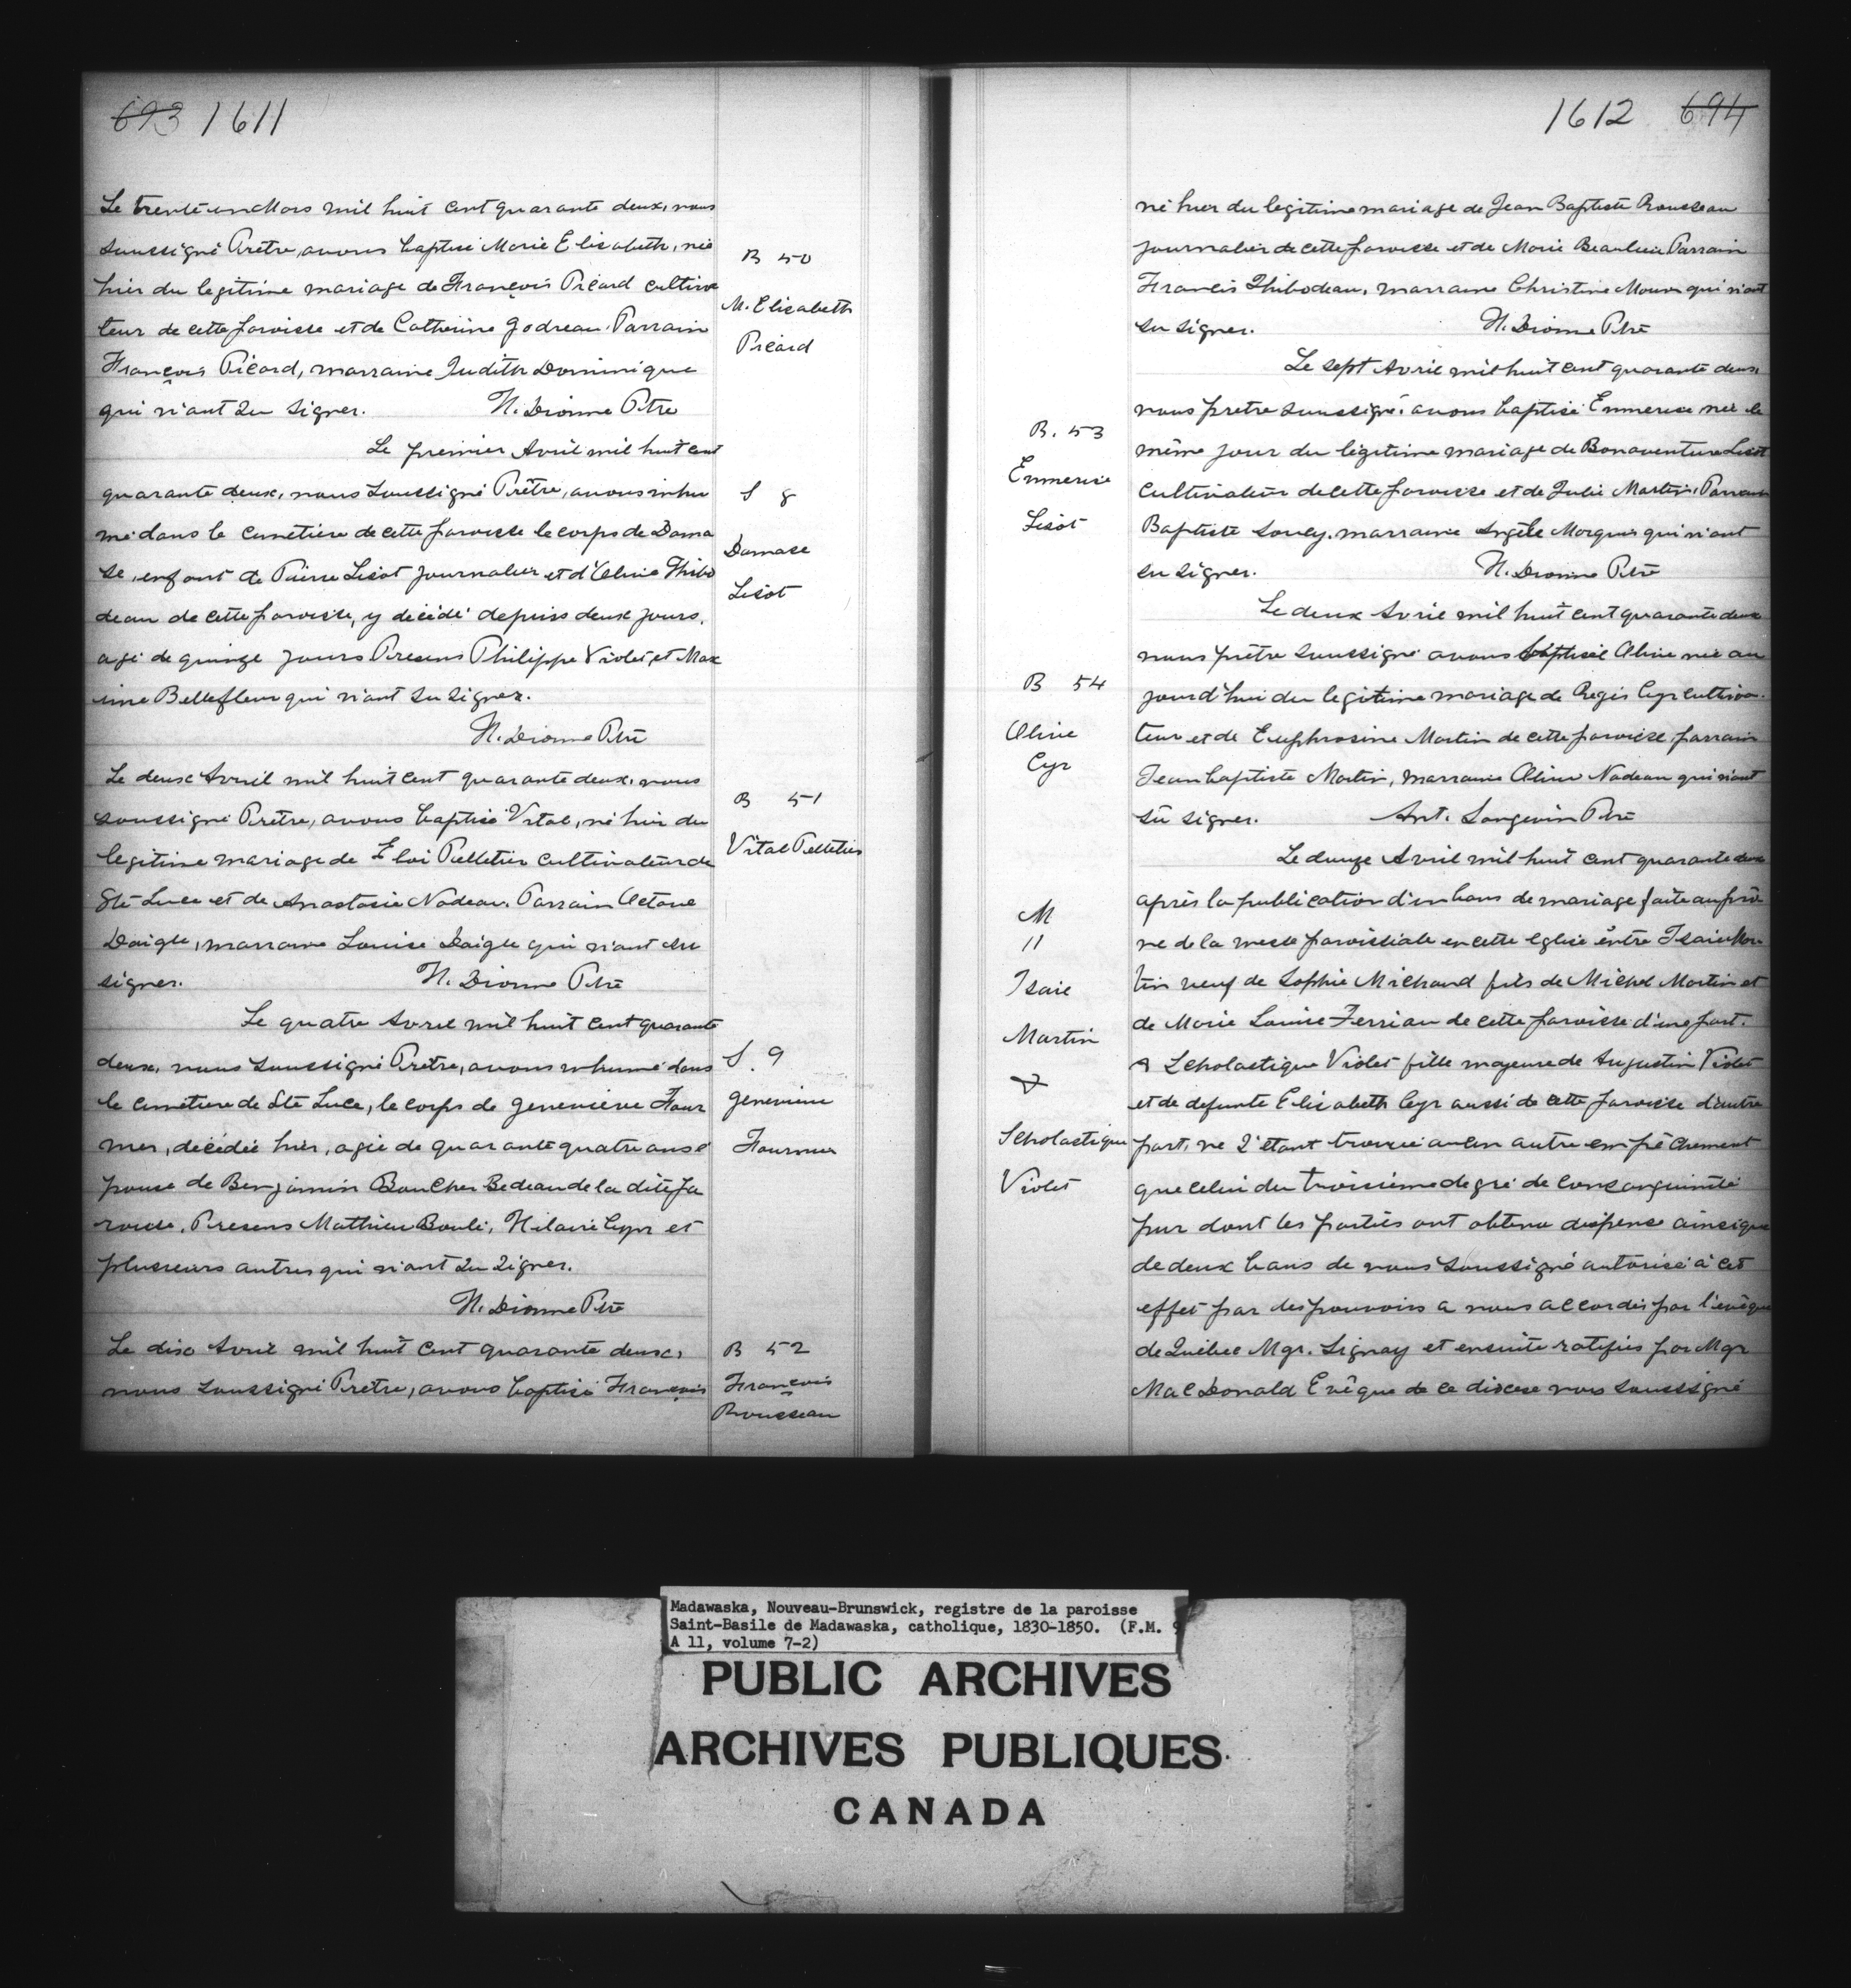 693 1611
Le trente un Mars mil huit cent quarante deux, nous
soussigné Prêtre, avons baptisé Marie Elisabeth, née
hier du legitime mariage de François Picard cultiva
teur de cette paroisse et de Catherine Godreau. Parrain
François Picard, marraine Judith Dominique
qui n'ont su signer. H. Dionne Ptre
B 50
M. Elisabeth
Picard
Le premier Avril mil huit cent
quarante deux, nous soussigné Prêtre, avons inhu
mé dans le cimetière de cette paroisse le corps de Dama
se, enfant de Pierre Lisot journalier et d'Olive Thibo
deau de cette paroisse, y décédé depuis deux jours,
agé de quinze jours Presens Philippe Violet et Max
ime Bellefleur qui n'ont su signer.
H. Dionne Ptre
S 8
Damase
Lisot
Le deux Avril mil huit cent quarante deux, nous
soussigné Prêtre, avons baptisé Vital, né hier du
legitime mariage de Eloi Pelletier cultivateur de
Ste Luce et de Anastasie Nadeau. Parrain Octave
Daigle, marraine Louise Daigle qui n'ont su
signer. H. Dionne Ptre
B 51
Vital Pelletier
Le quatre Avril mil huit cent quarante
deux, nous soussigné Prêtre, avons inhumé dans
le cimetiere de Ste Luce, le corps de Genevieve Four
nier, décédée hier, agée de quarante quatre ans é
pouse de Benjamin Boucher Bedeau de la dite pa
roisse. Presens Mathieu Boulé, Hilaire Cyr et
plusieurs autres qui n'ont su signer.
H. Dionne Ptre
S. 9
Genevieve
Fournier
Le dix Avril mil huit cent quarante deux,
nous soussigné Pretre, avons baptisé François
B 52
François
Rousseau
1612 694
né hier du legitime mariage de Jean Baptiste Rousseau
journalier de cette paroisse et de Marie Beaulieu Parrain
Francis Thibodeau, marraine Christine qui n'ont
su signer. H. Dionne Ptre
Le sept Avril mil huit cent quarante deux
nous pretre soussigné avons baptisé Enmerise née le
même jour du légitime mariage de Bonaventure Lisot
cultivateur de cette paroisse et de Julie Martin, Parrain
Baptiste Soucy, marraine Angèle Morquis qui n'ont
su signer. H. Dionne Ptre
B. 53
Enmerise
Lisot
Le deux Avril mil huit cent quarante deux
nous prêtre soussigné avons baptisé Olive née au
jourd'hui du legitime mariage de Regis Cyr cultiva-
teur et de Euphrosine Martin de cette paroisse, parrain
Jean baptiste Martin, marraine Olive Nadeau qui n'ont
sû signer. Ant. Langevin Ptre
B 54
Olive
Cyr
Le douze Avril mil huit cent quarante deux
après la publication d'un bans de mariage faite au prô
ne de la messe paroissiale en cette eglise entre Isaie Mar
tin veuf de Sophie Michaud fils de Michel Martin et
de Marie Louise Ferrian de cette paroisse d'une part.
& Scholastique Violet fille majeure de Augustin Violet
et de defunte Elisabeth Cyr aussi de cette paroisse d'autre
part, ne s'étant trouvé aucun autre empêchement
que celui du troisième degré de consanguinité
pur dont les parties ont obtenu dispense ainsi que
de deux bans de nous soussigné autorisé à cet
effet par des pouvoirs a nous accordés par l'evêque
de Québec Mgr. Signay et ensuite ratifiés par Mgr
MacDonald Evêque de ce diocese nous soussigné
M
11
Isaie
Martin
&
Scholastique
Violet
Madawaska, Nouveau-Brunswick, registre de la paroisse
Saint-Basile de Madawaska, catholique, 1830-1850. (F.M. 9
A 11, volume 7-2)
PUBLIC ARCHIVES
ARCHIVES PUBLIQUES
CANADA